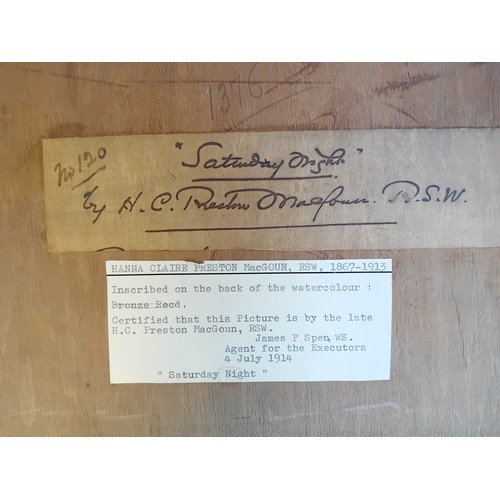 1376
No 120
"Saturday Night"
by H. C. Preston MacGoun. R.S.W.
HANNA CLAIRE PRESTON MacGOUN, RSW, 1867-1913
Inscribed on the back of the watercolour :
Bronze Reed,
Certified that this Picture is by the late
H.C. Preston MacGoun, RSW.
James P Spen, WS.
Agent for the Executors
4 July 1914
" Saturday Night "